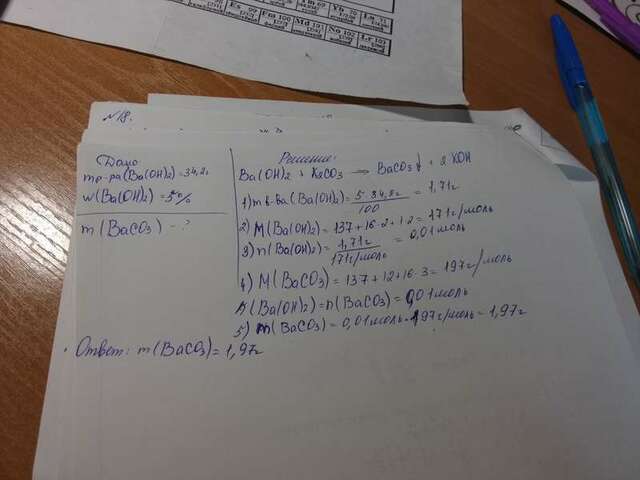 Es 99
Fm 100
Md 101
No 102
Lr 103
№ 18.
Дано
mр-ра(Ba(OH)2)=34,2г
w(Ba(OH)2)=5%
m(BaCO3) - ?
Решение:
Ba(OH)2 + K2CO3 → BaCO3↓ + 2KOH
1) m в-ва(Ba(OH)2) = 5·34,2г / 100 = 1,71г
2) M(Ba(OH)2)=137+16·2+1·2=171г/моль
3) n(Ba(OH)2) = 1,71г / 171г/моль = 0,01моль
4) M(BaCO3)=137+12+16·3=197г/моль
n(Ba(OH)2)=n(BaCO3)=0,01моль
5) m(BaCO3)=0,01моль·197г/моль=1,97г
Ответ: m(BaCO3)=1,97г